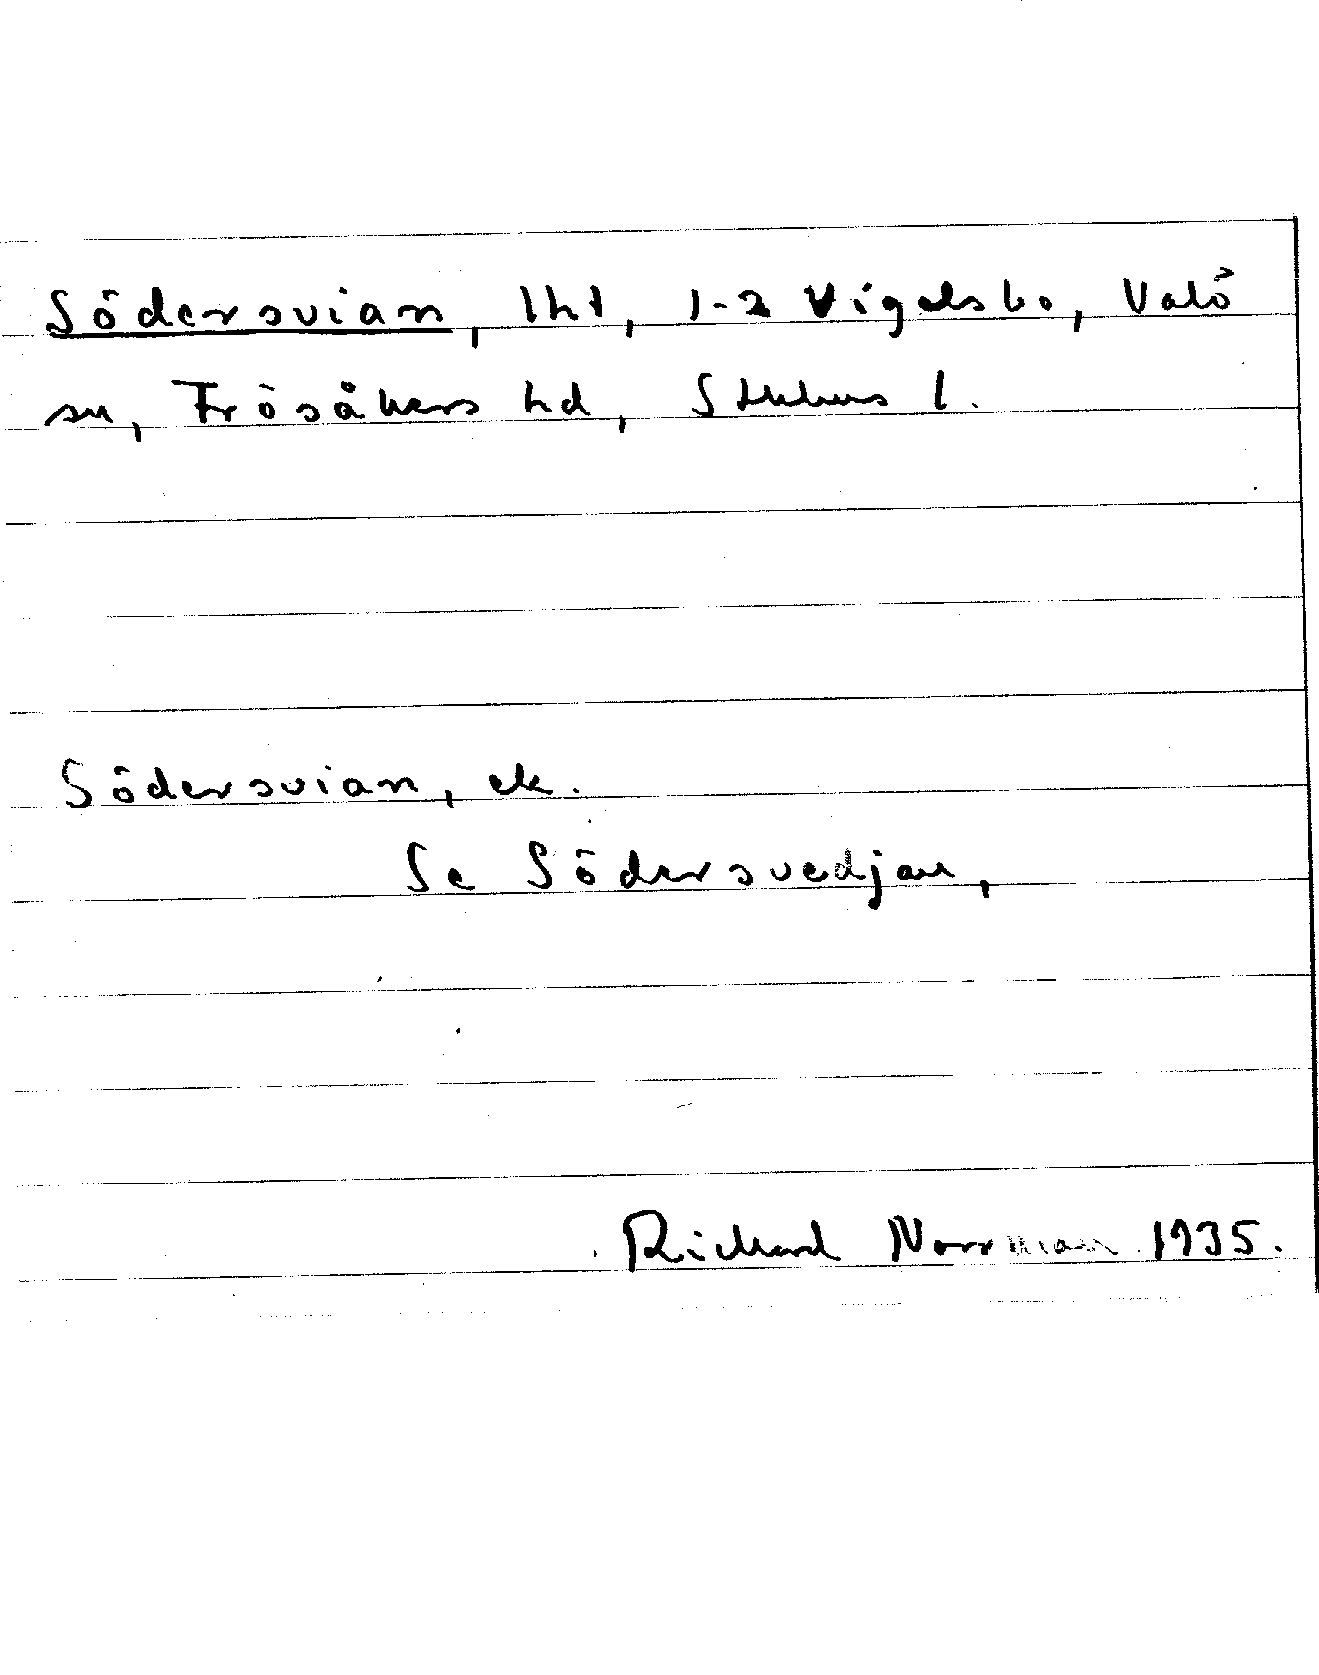 Södersvian, lht, 1-2 Vigelsbo, Valö
sn, Frösåkers hd, Sthlms l.
Södersvian, ek.
Se Södersvedjan,
Richard Norrman 1935.